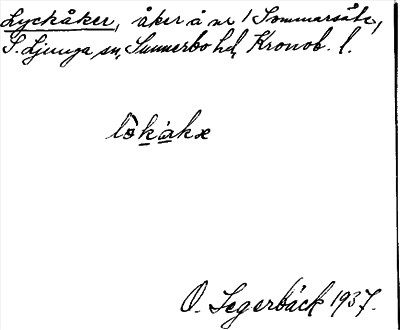 Lyckåker, åker å nr 1 Sommarsäte,
S. Ljunga sn, Sunnerbo hd, Kronob. l.
lo᷉kåkæ
O. Segerbäck 1937.